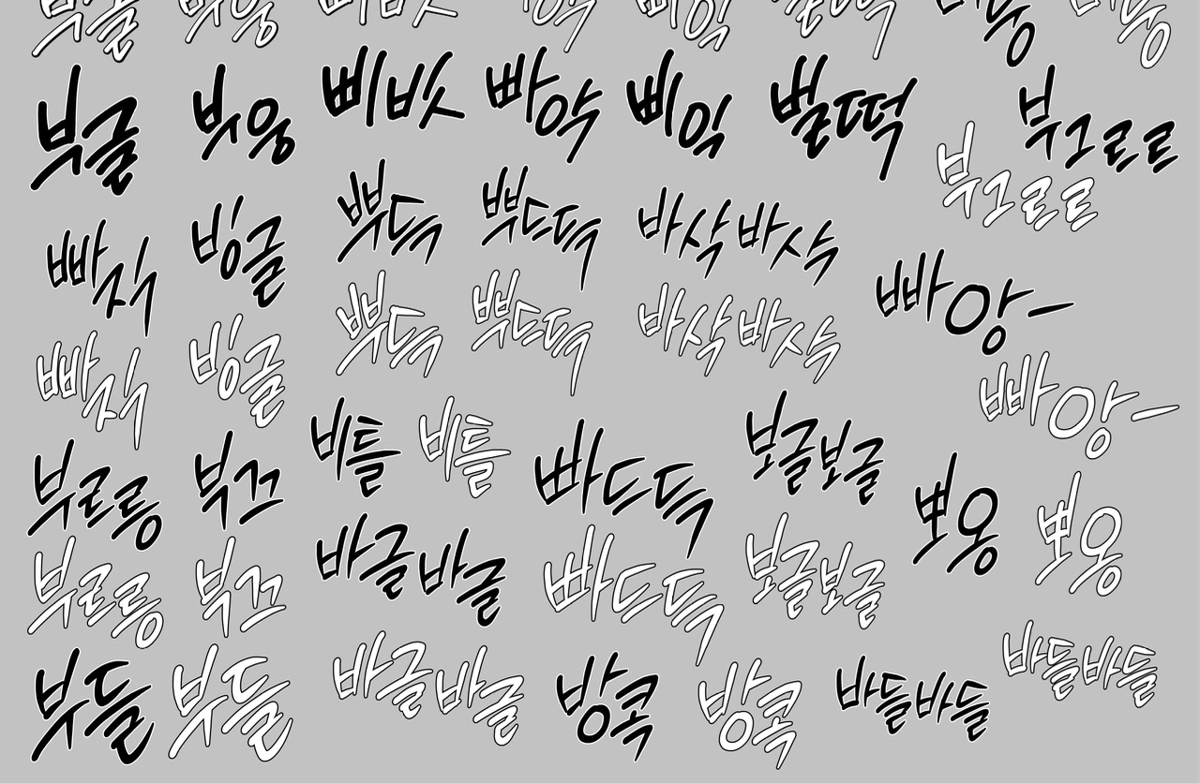 부글 부웅 삐빗 빠악 삐익 벌떡 부그르르
부그르르
빠직 빙글 뿌득 뿌드득 바삭바삭 빠앙-
빠직 빙글 뿌득 뿌드득 바삭바삭 빠앙-
부르릉 부끄 비틀 비틀 빠드득 보글보글 뾰옹 뾰옹
부르릉 부끄 바글바글 빠드득 보글보글
부들 부들 바글바글 방콕 방콕 바들바들 바들바들